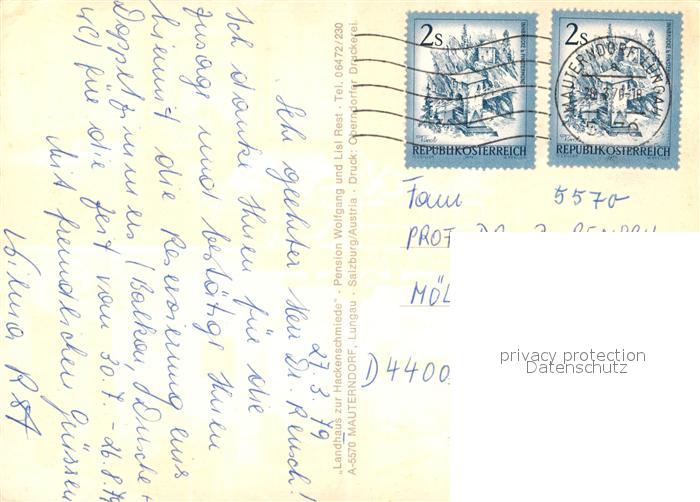 2s
2s
REPUBLIK ÖSTERREICH
REPUBLIK ÖSTERREICH
MAUTERNDORF, LUNGAU
„Landhaus zur Hackenschmiede“ · Pension Wolfgang und Lisl Rest · Tel. 06472/230
A-5570 MAUTERNDORF, Lungau · Salzburg/Austria · Druck: Oberndorfer Druckerei
27.3.79
Sehr geehrter Herr Dr. Rensch!
Ich danke Ihnen für die
Zusage und bestätige Ihnen
hiermit die Reservierung eines
Doppelzimmers (Balkon, Dusche +
WC) für die Zeit vom 30.7. – 26.8.79
Mit freundlichen Grüssen
Fam
5570
PROF. DR.
MÖL
D 4400
privacy protection
Datenschutz